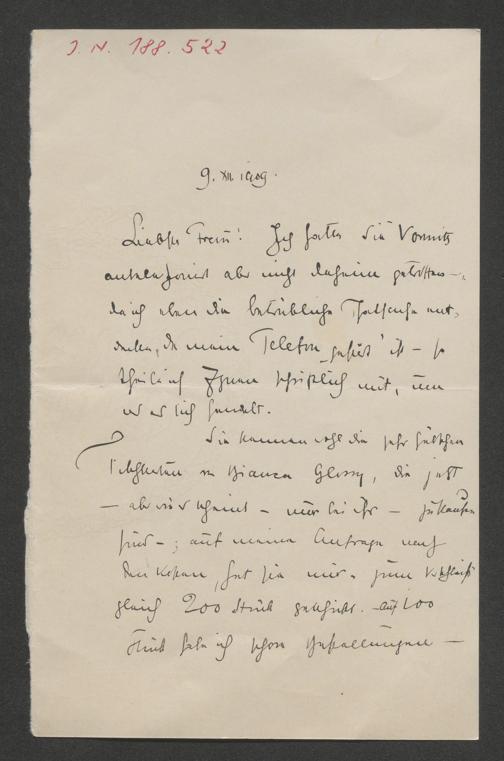 J. N. 188.522
9. XII. 1909.
Liebster Freund! Ich hatte Sie Vormitt.
antelefoniert aber nicht daheim getroffen –,
da ich eben die betrübliche Thatsache ent-
decke, daß mein Telefon „gestört" ist – so
theile ich Ihnen schriftlich mit, um
was es sich handelt.
Sie kennen wohl die sehr hübschen
von Bianca Glossy, die jetzt
– aber wie es scheint – nur bei ihr – zu kaufen
sind –; auf meine Anfrage nach
den Kosten, hat sie mir – zum
gleich 200 Stück geschickt. auf 100
Stück habe ich schon Bestellungen –